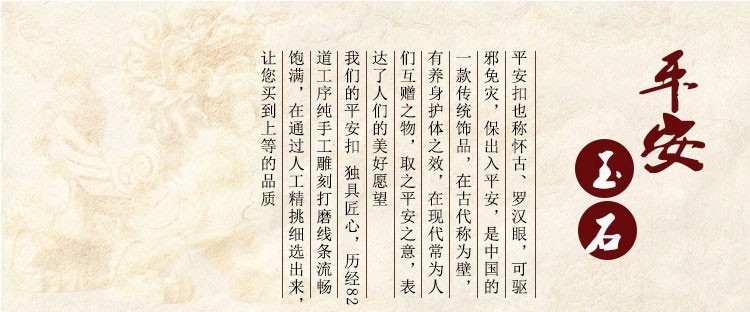 平安
玉石
平安扣也称怀古、罗汉眼，可驱
邪免灾，保出入平安，是中国的
一款传统饰品，在古代称为璧，
有养身护体之效，在现代常为人
们互赠之物，取之平安之意，表
达了人们的美好愿望
我们的平安扣 独具匠心，历经82
道工序纯手工雕刻打磨线条流畅
饱满，在通过人工精挑细选出来，
让您买到上等的品质